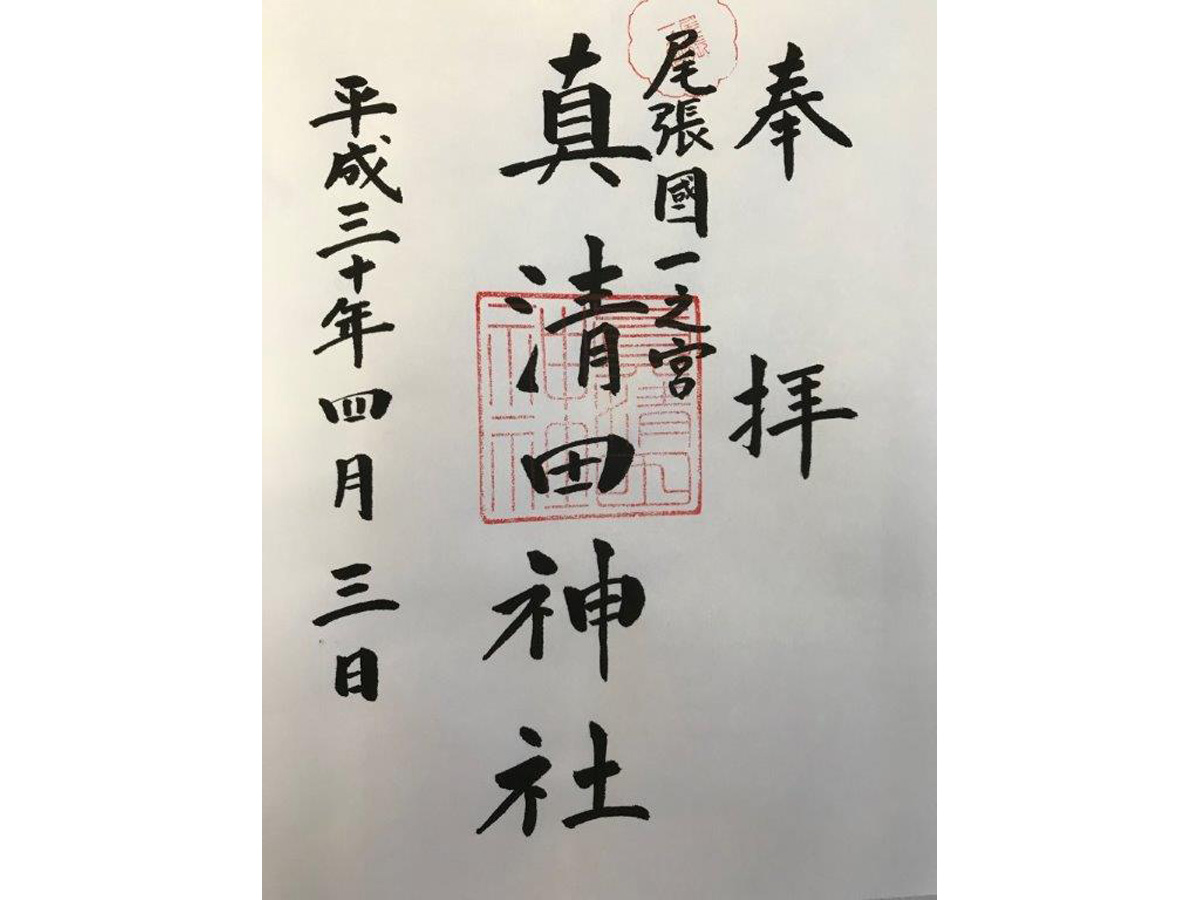 奉拝
尾張國一之宮
真清田神社
平成三十年四月三日